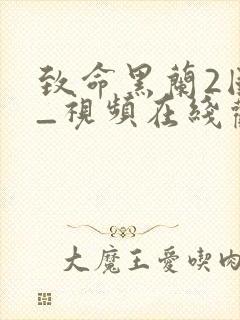 致命黑蘭2
_視頻在綫
大魔王愛喫肉